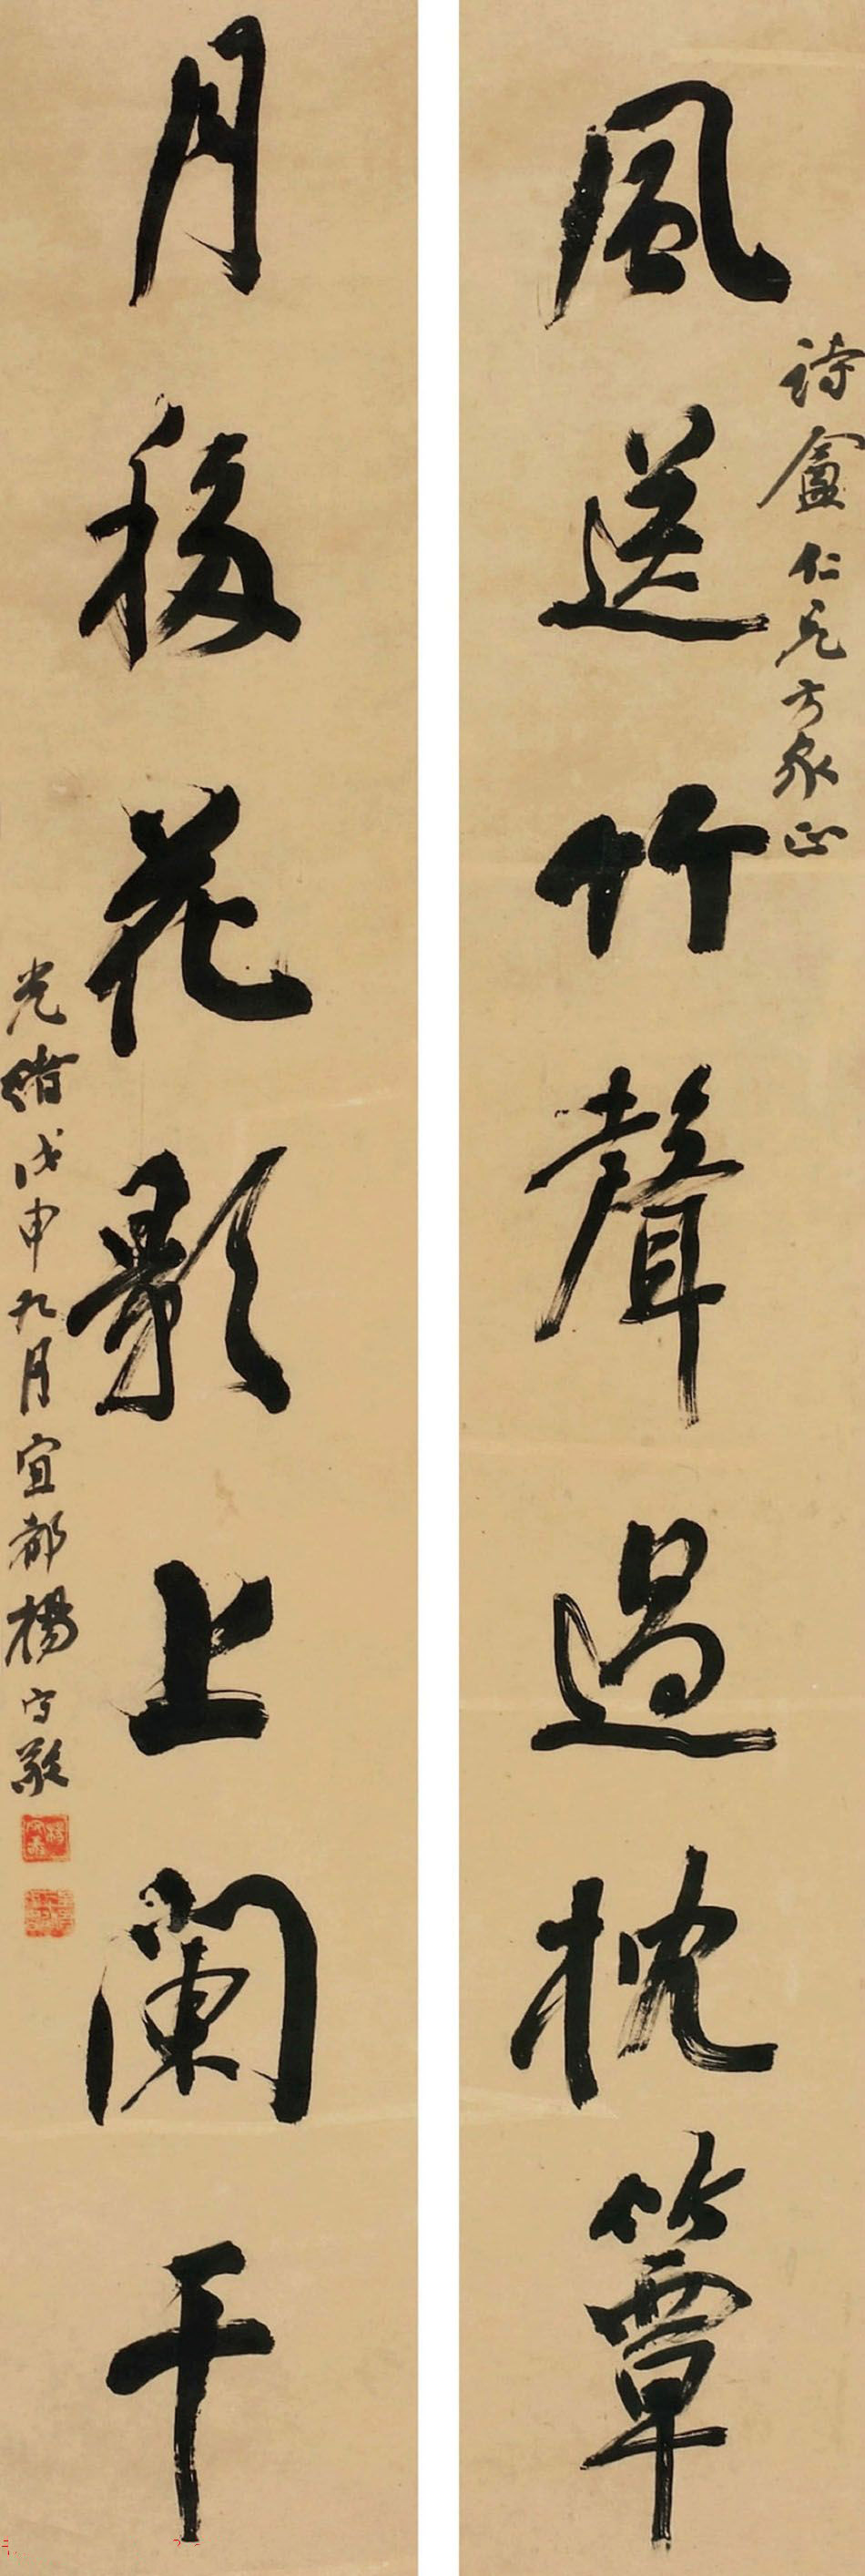 詩盦仁兄方家正
風送竹聲過枕簟
月移花影上闌干
光緒戊申九月宜都楊守敬